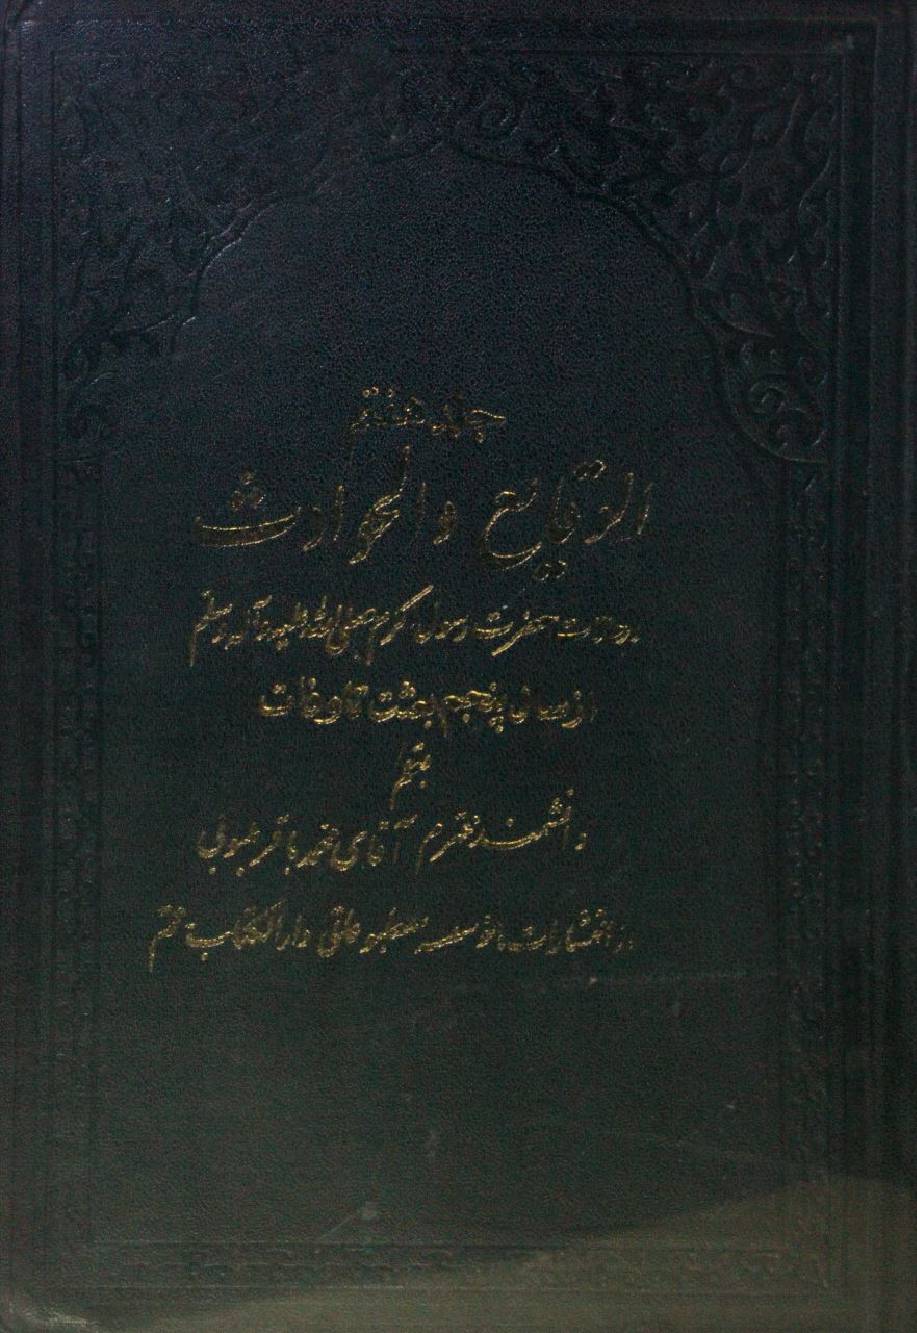 جلد هفتم
الوقایع والحوادث
حضرت رسول اکرم صلی الله علیه وآله وسلم
از سال پنجم بعثت تا وفات
بقلم
دانشمند محترم آقای محمد باقر ملبوبی
از انتشارات مؤسسه مطبوعاتی دارالکتاب قم